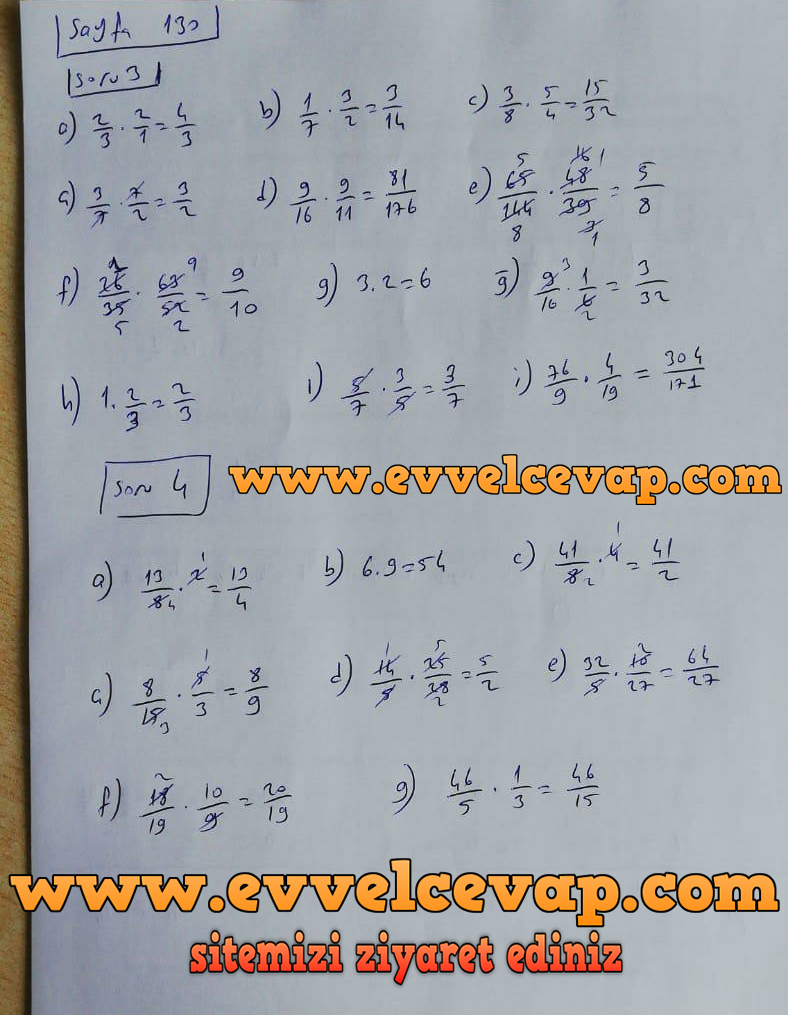 Sayfa 130
Soru 3
a) 2/3 · 2/1 = 4/3 b) 1/7 · 3/2 = 3/14 c) 3/8 · 5/4 = 15/32
ç) 3/7 · 7/2 = 3/2 d) 9/16 · 9/11 = 81/176 e) 65/144 · 48/39 = 5/8
f) 26/35 · 63/52 = 9/10 g) 3.2=6 ğ) 9/16 · 1/6 = 3/32
h) 1 · 2/3 = 2/3 ı) 5/7 · 3/5 = 3/7 i) 76/9 · 4/19 = 304/171
Soru 4
www.evvelcevap.com
a) 13/8 · 2 = 13/4 b) 6.9=54 c) 41/8 · 4 = 41/2
ç) 8/15 · 5/3 = 8/9 d) 14/5 · 25/28 = 5/2 e) 32/5 · 10/27 = 64/27
f) 18/19 · 10/9 = 20/19 g) 46/5 · 1/3 = 46/15
www.evvelcevap.com
sitemizi ziyaret ediniz